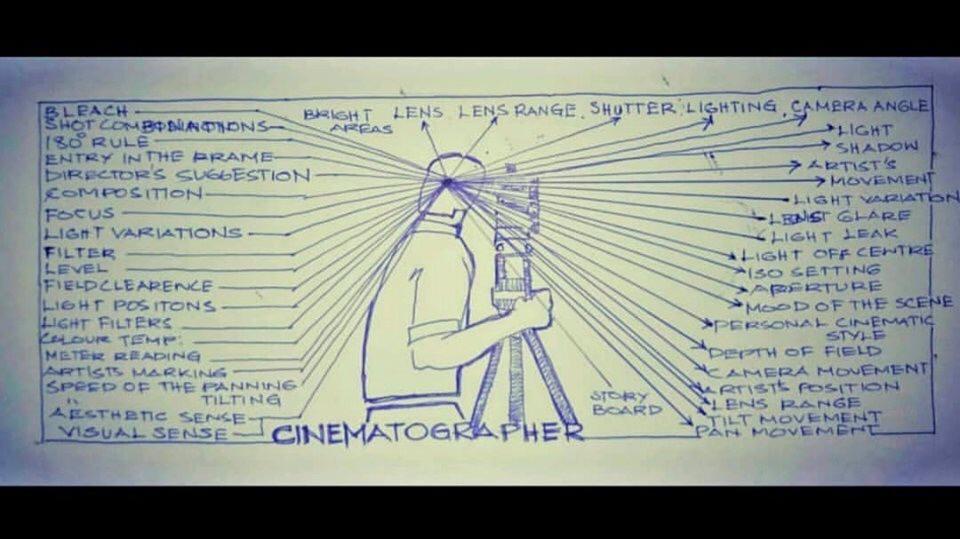 BLEACH
SHOT COMBINATIONS
180° RULE
ENTRY IN THE FRAME
DIRECTOR'S SUGGESTION
COMPOSITION
FOCUS
LIGHT VARIATIONS
FILTER
LEVEL
FIELD CLEARENCE
LIGHT POSITONS
LIGHT FILTERS
COLOUR TEMP:
METER READING
ARTISTS MARKING
SPEED OF THE PANNING
" TILTING
AESTHETIC SENSE
VISUAL SENSE
BRIGHT
AREAS
LENS
LENS RANGE
SHUTTER
LIGHTING
CAMERA ANGLE
LIGHT
SHADOW
ARTIST'S
MOVEMENT
LIGHT VARIATION
GLARE
LIGHT LEAK
LIGHT OFF CENTRE
ISO SETTING
APERTURE
MOOD OF THE SCENE
PERSONAL CINEMATIC
STYLE
DEPTH OF FIELD
CAMERA MOVEMENT
ARTIST'S POSITION
LENS RANGE
TILT MOVEMENT
PAN MOVEMENT
STORY
BOARD
CINEMATOGRAPHER